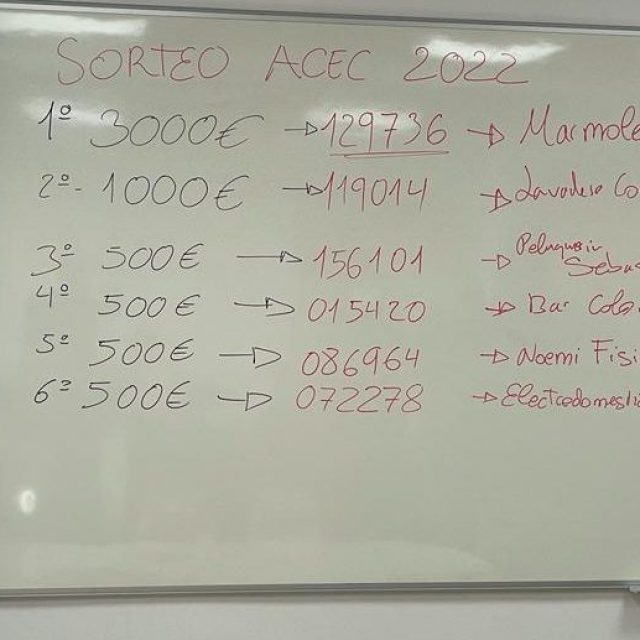 SORTEO ACEC 2022
1º 3000€ → 129736 → Marmole
2º- 1000€ → 119014 → Lavadero Co
3º 500€ → 156101 → Peluqueria Sebas
4º 500€ → 015420 → Bar Colo
5º 500€ → 086964 → Noemi Fisi
6º 500€ → 072278 → Electrodomesti